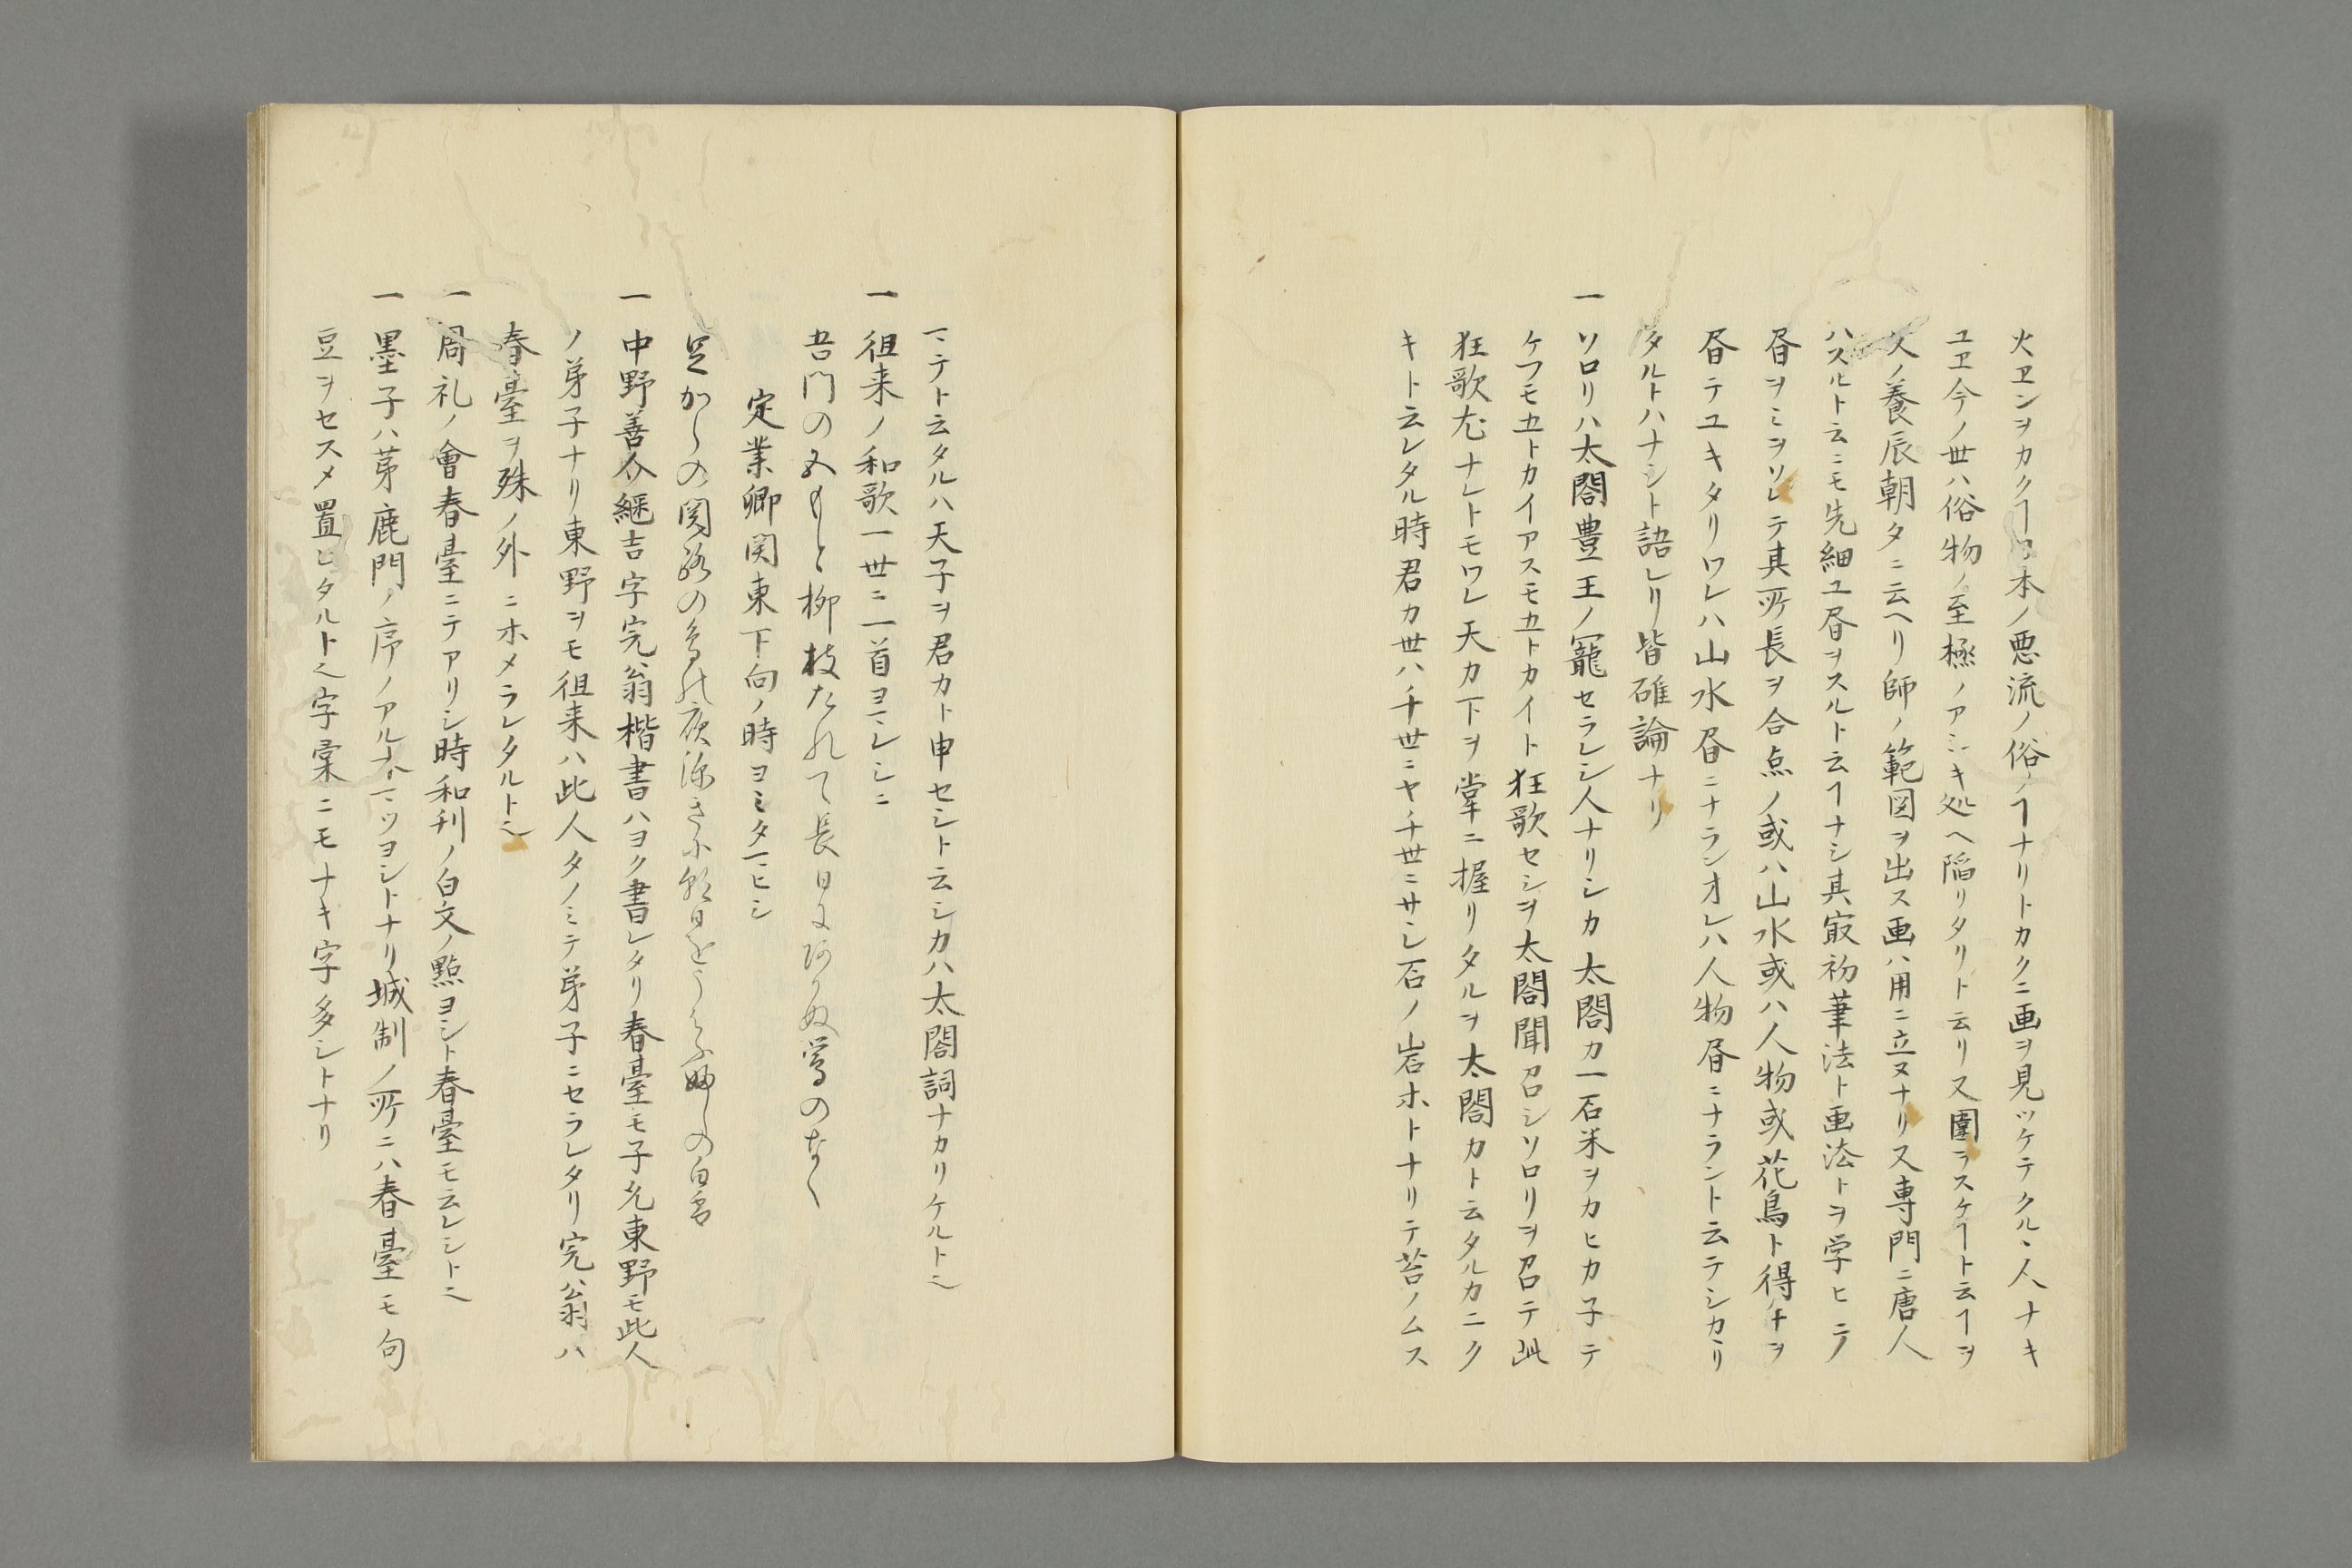 火ヱンヲカクヿ日本ノ悪流ノ俗ノヿナリトカクニ画ヲ見ツケテクルヽ人ナキ
ユヱ今ノ世ハ俗物ノ至極ノアシキ処ヘ陥リタリト云リ又圍ヲスケヿト云ヿヲ
ノ養辰朝夕ニ云ヘリ師ノ範図ヲ出ス画ハ用ニ立ヌナリ又専門ニ唐人
ハスルト云ニモ先細ユ昼ヲスルト云ヿナシ其㝡初筆法ト画法トヲ学ヒテ
昼ヲミヲソレテ其所長ヲ合点ノ或ハ山水或ハ人物或花鳥ト得手ヲ
昼テユキタリワレハ山水昼ニナランオレハ人物昼ニナラント云テシカリ
タルトハナシト語レリ皆確論ナリ
一ソロリハ太閤豊王ノ寵セラレシ人ナリシカ太閤カ一石米ヲカヒカ子テ
ケフモ五トカイアスモ五トカイト狂歌セシヲ太閤聞召シソロリヲ召テ此
狂歌尤ナレトモワレ天カ下ヲ掌ニ握リタルヲ太閤カト云タルカニク
キト云レタル時君カ世ハ千世ニヤチ世ニサヽレ石ノ岩ホトナリテ苔ノムス
マテト云タルハ天子ヲ君カト申セシト云シカハ太閤詞ナカリケルト也
一徂来ノ和歌一世ニ二首ヨマレシニ
吾門の五もと柳枝たれて長き日にあかぬ鶯のなく
定業卿関東下向ノ時ヨミタマヒシ
足からの関路の鳥の夜深きに朝日をうつふ婦しの白雪
一中野善介継吉字完翁楷書ハヨク書レタリ春臺モ子允東野モ此人
ノ弟子ナリ東野ヲモ徂来ハ此人タノミテ弟子ニセラレタリ完翁ハ
春臺ヲ殊ノ外ニホメラレタルト也
一周礼ノ會春臺ニテアリシ時和刋ノ白文ノ點ヨシト春臺モ云レシト也
一墨子ハ茅鹿門ノ序ノアル本マツヨシトナリ城制ノ所ニハ春臺モ句
豆ヲセスメ置レタルト也字彙ニモナキ字多シトナリ